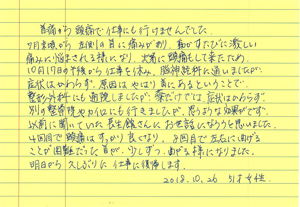 首痛から頭痛で仕事にも行けませんでした。
7月末頃から左側の首に痛みがあり、動かすたびに激しい
痛みに悩まされる様になり、次第に頭痛もして来たため
10月17日の午後から仕事を休み、脳神経科に通いましたが
症状はかわらず、原因はやはり首にあるということで
整形外科にも通院しましたが、薬だけでは症状はかわらず
別の整骨院やカイロにも行きましたが、思うような効果がでず
以前に聞いていた長生館さんにお世話になろうと思いました。
4回目で頭痛はすっかり良くなり、8回目で左右に曲げる
ことが困難だった首が、少しずつ曲がる様になりました。
明日から久しぶりに仕事に復帰します。
2018.10.26 51才女性